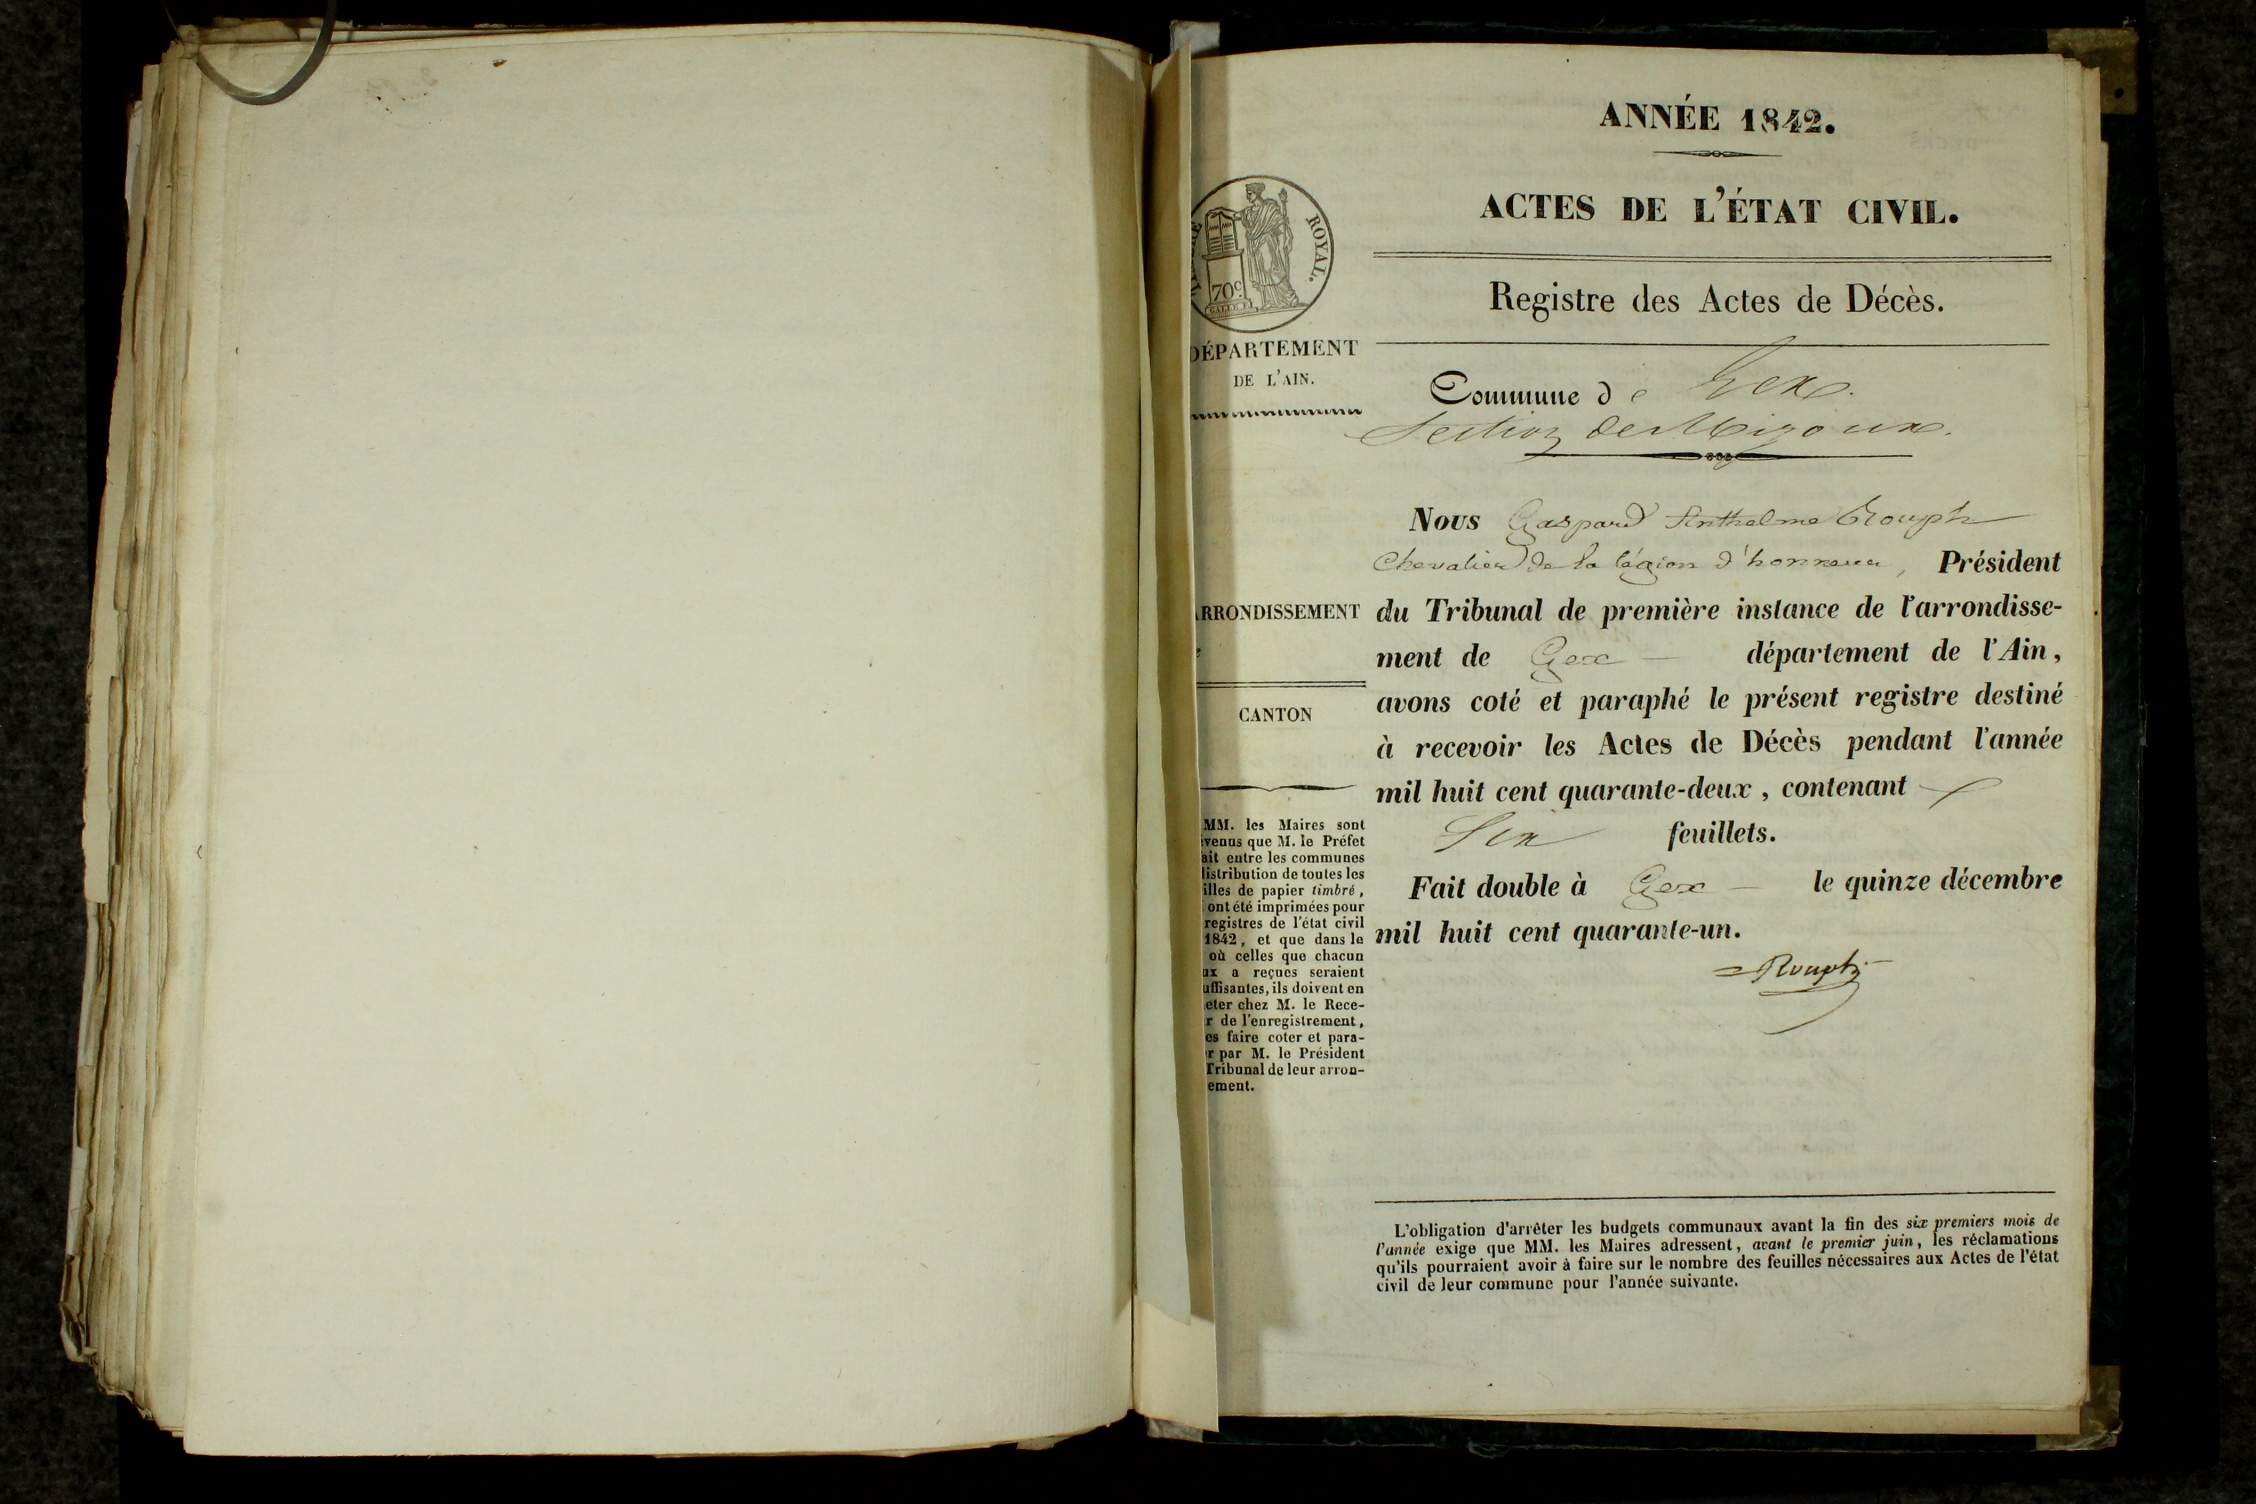 ANNÉE 1842.
ACTES DE L'ÉTAT CIVIL.
Registre des Actes de Décès.
ROYAL.
70c
DÉPARTEMENT
DE L'AIN.
Commune de Gex.
Section de Mijoux.
Nous Gaspard Anthelme Rouph
Chevalier de la légion d'honneur, Président
du Tribunal de première instance de l'arrondisse-
ment de Gex département de l'Ain,
avons coté et paraphé le présent registre destiné
à recevoir les Actes de Décès pendant l'année
mil huit cent quarante-deux, contenant
Six feuillets.
Fait double à Gex le quinze décembre
mil huit cent quarante-un.
Rouph
RRONDISSEMENT
CANTON
MM. les Maires sont
venus que M. le Préfet
ait entre les communes
listribution de toutes les
illes de papier timbré,
ont été imprimées pour
registres de l'état civil
1842, et que dans le
où celles que chacun
ux a reçues seraient
uffisantes, ils doivent en
eter chez M. le Rece-
r de l'enregistrement,
es faire coter et para-
r par M. le Président
Tribunal de leur arron-
ement.
L'obligation d'arrêter les budgets communaux avant la fin des six premiers mois de
l'année exige que MM. les Maires adressent, avant le premier juin, les réclamations
qu'ils pourraient avoir à faire sur le nombre des feuilles nécessaires aux Actes de l'état
civil de leur commune pour l'année suivante.